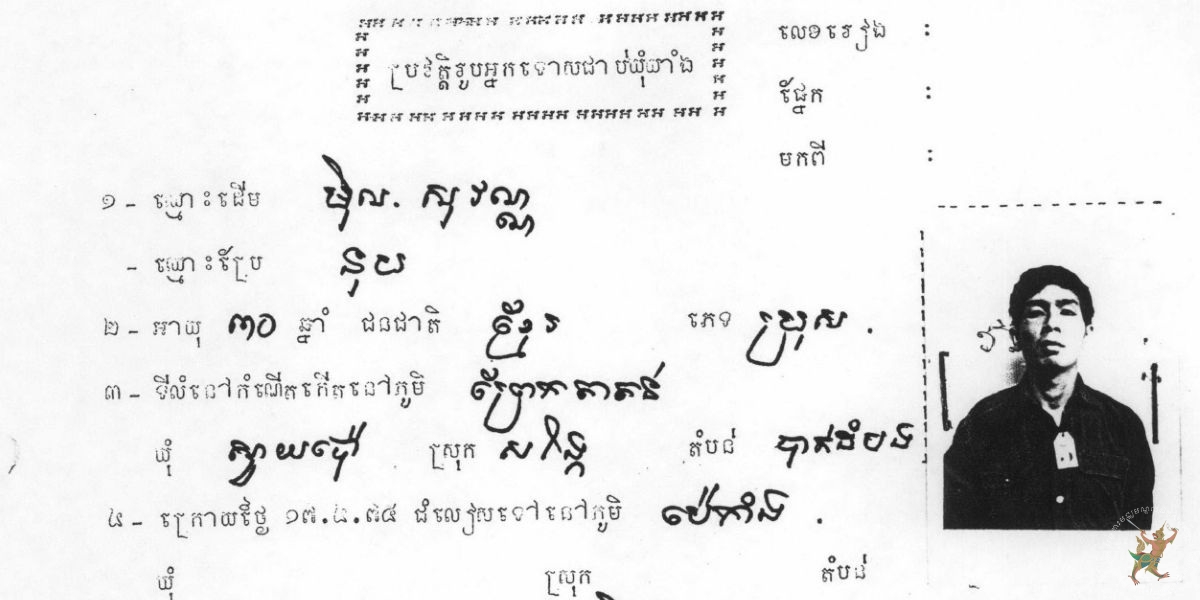 ប្រវត្តិរូបអ្នកទោសជាប់ឃុំឃាំង
លេខរៀង :
ផ្នែក :
មកពី :
១ - ឈ្មោះដើម ម៉ិល. សុវណ្ណ
- ឈ្មោះប្រែ នុយ
២ - អាយុ ៣០ ឆ្នាំ ជនជាតិ ខ្មែរ ភេទ ប្រុស .
៣ - ទីលំនៅកំណើតកើតនៅភូមិ ព្រែកតាតន់
ឃុំ ស្វាយប៉ោ ស្រុក សង្កែ តំបន់ បាត់ដំបង
៤ - ក្រោយថ្ងៃ ១៧.៤.៧៥ ជំលៀសទៅនៅភូមិ
ឃុំ ស្រុក តំបន់